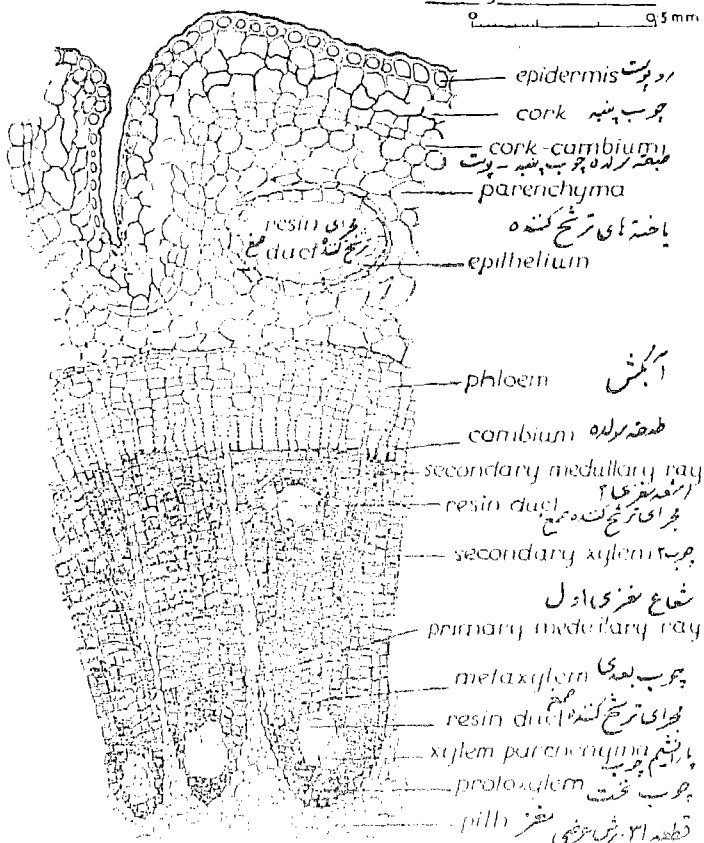 0 0.5 mm
epidermis روپوست
cork چوب پنبه
cork-cambium
طبقه مولده چوب پنبه - پوست
parenchyma
یاخته های ترشح کننده
resin مجرای
duct ترشح کننده صمغ
epithelium
phloem آبکش
cambium طبقه مولده
secondary medullary ray
اشعه مغزی ۲
resin duct
مجرای ترشح کننده صمغ
secondary xylem چوب ۲
شعاع مغزی اول
primary medullary ray
metaxylem چوب بعدی
resin duct مجرای ترشح کننده صمغ
xylem parenchyma پارانشیم چوب
protoxylem چوب نخست
pith مغز
قطعه ۳۱. برش عرضی